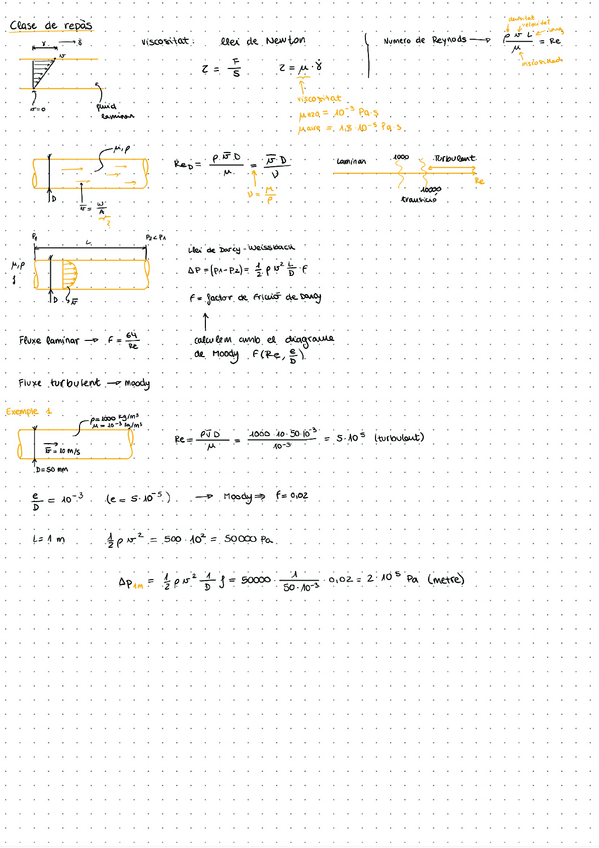 Clase de repàs
viscositat: llei de Newton
τ = F/S    τ = μ · γ̇
viscositat
μH2O = 10⁻³ Pa·s
μaire = 1.8 10⁻⁵ Pa·s
Numero de Reynods → ρ v L / μ = Re
densitat
velocitat
viscositat
v
v=0
fluid
laminar
μ, ρ
D
ReD = ρ v̄ D / μ = v̄ D / ν
ν = μ/ρ
Laminar 1000 Turbulent
10000 Re
transició
P1 L P2 < P1
μ, ρ
D v̄
Llei de Darcy-Weissbach
ΔP = (P1-P2) = 1/2 ρ v² L/D · F
F = factor de fricció de Darcy
calculem amb el diagrama
de Moody F(Re, e/D)
Fluxe laminar → F = 64/Re
Fluxe turbulent → moody
Exemple 1
ρ = 1000 kg/m³
v̄ = 10 m/s
D = 50 mm
Re = ρ v̄ D / μ = 1000 · 10 · 50·10⁻³ / 10⁻³ = 5·10⁵ (turbulent)
e/D = 10⁻³ (e = 5·10⁻⁵) → Moody ⇒ f = 0,02
L = 1 m    1/2 ρ v² = 500 · 10² = 50000 Pa
Δp1m = 1/2 ρ v² 1/D f = 50000 · 1/(50·10⁻³) · 0,02 = 2·10⁵ Pa (metre)